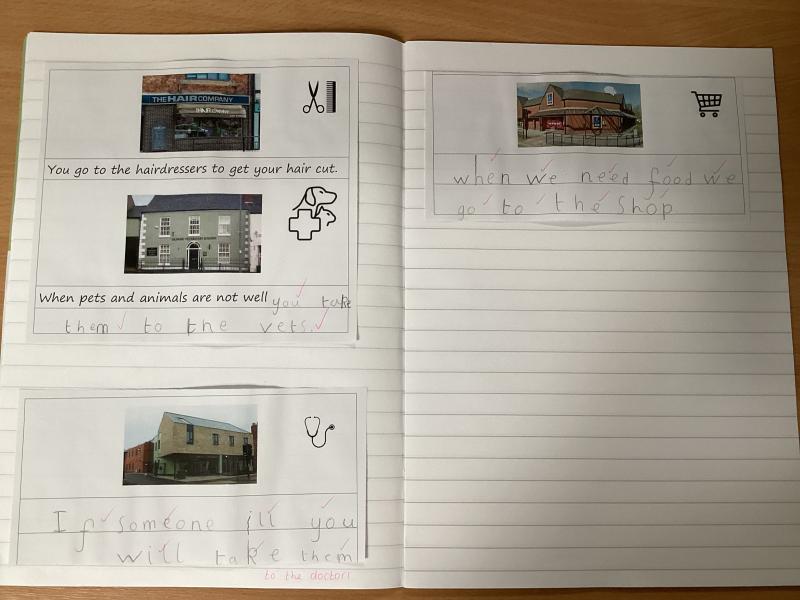 THE HAIR COMPANY
You go to the hairdressers to get your hair cut.
When pets and animals are not well you take
them to the vets.
If someone ill you
will take them
to the doctor.
when we need food we
go to the shop